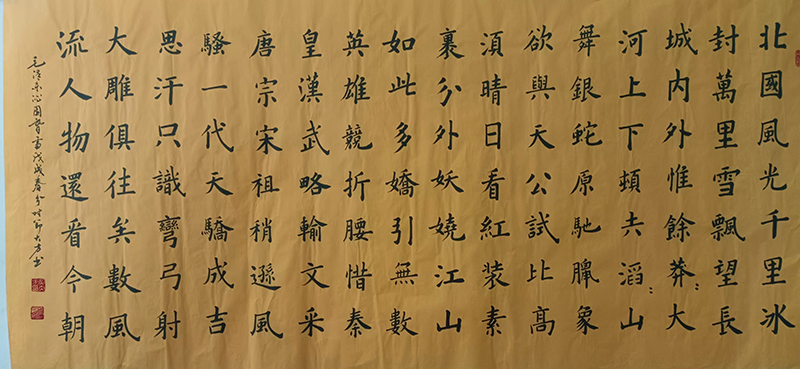 北國風光千里冰
封萬里雪飄望長
城內外惟餘莽:大
河上下頓失滔:山
舞銀蛇原馳臘象
欲與天公試比高
須晴日看紅装素
裹分外妖嬈江山
如此多嬌引無數
英雄競折腰惜秦
皇漢武略輸文采
唐宗宋祖稍遜風
騷一代天驕成吉
思汗只識彎弓射
大雕俱往矣數風
流人物還看今朝
毛澤東沁園春雪戊戌春分時節大方書